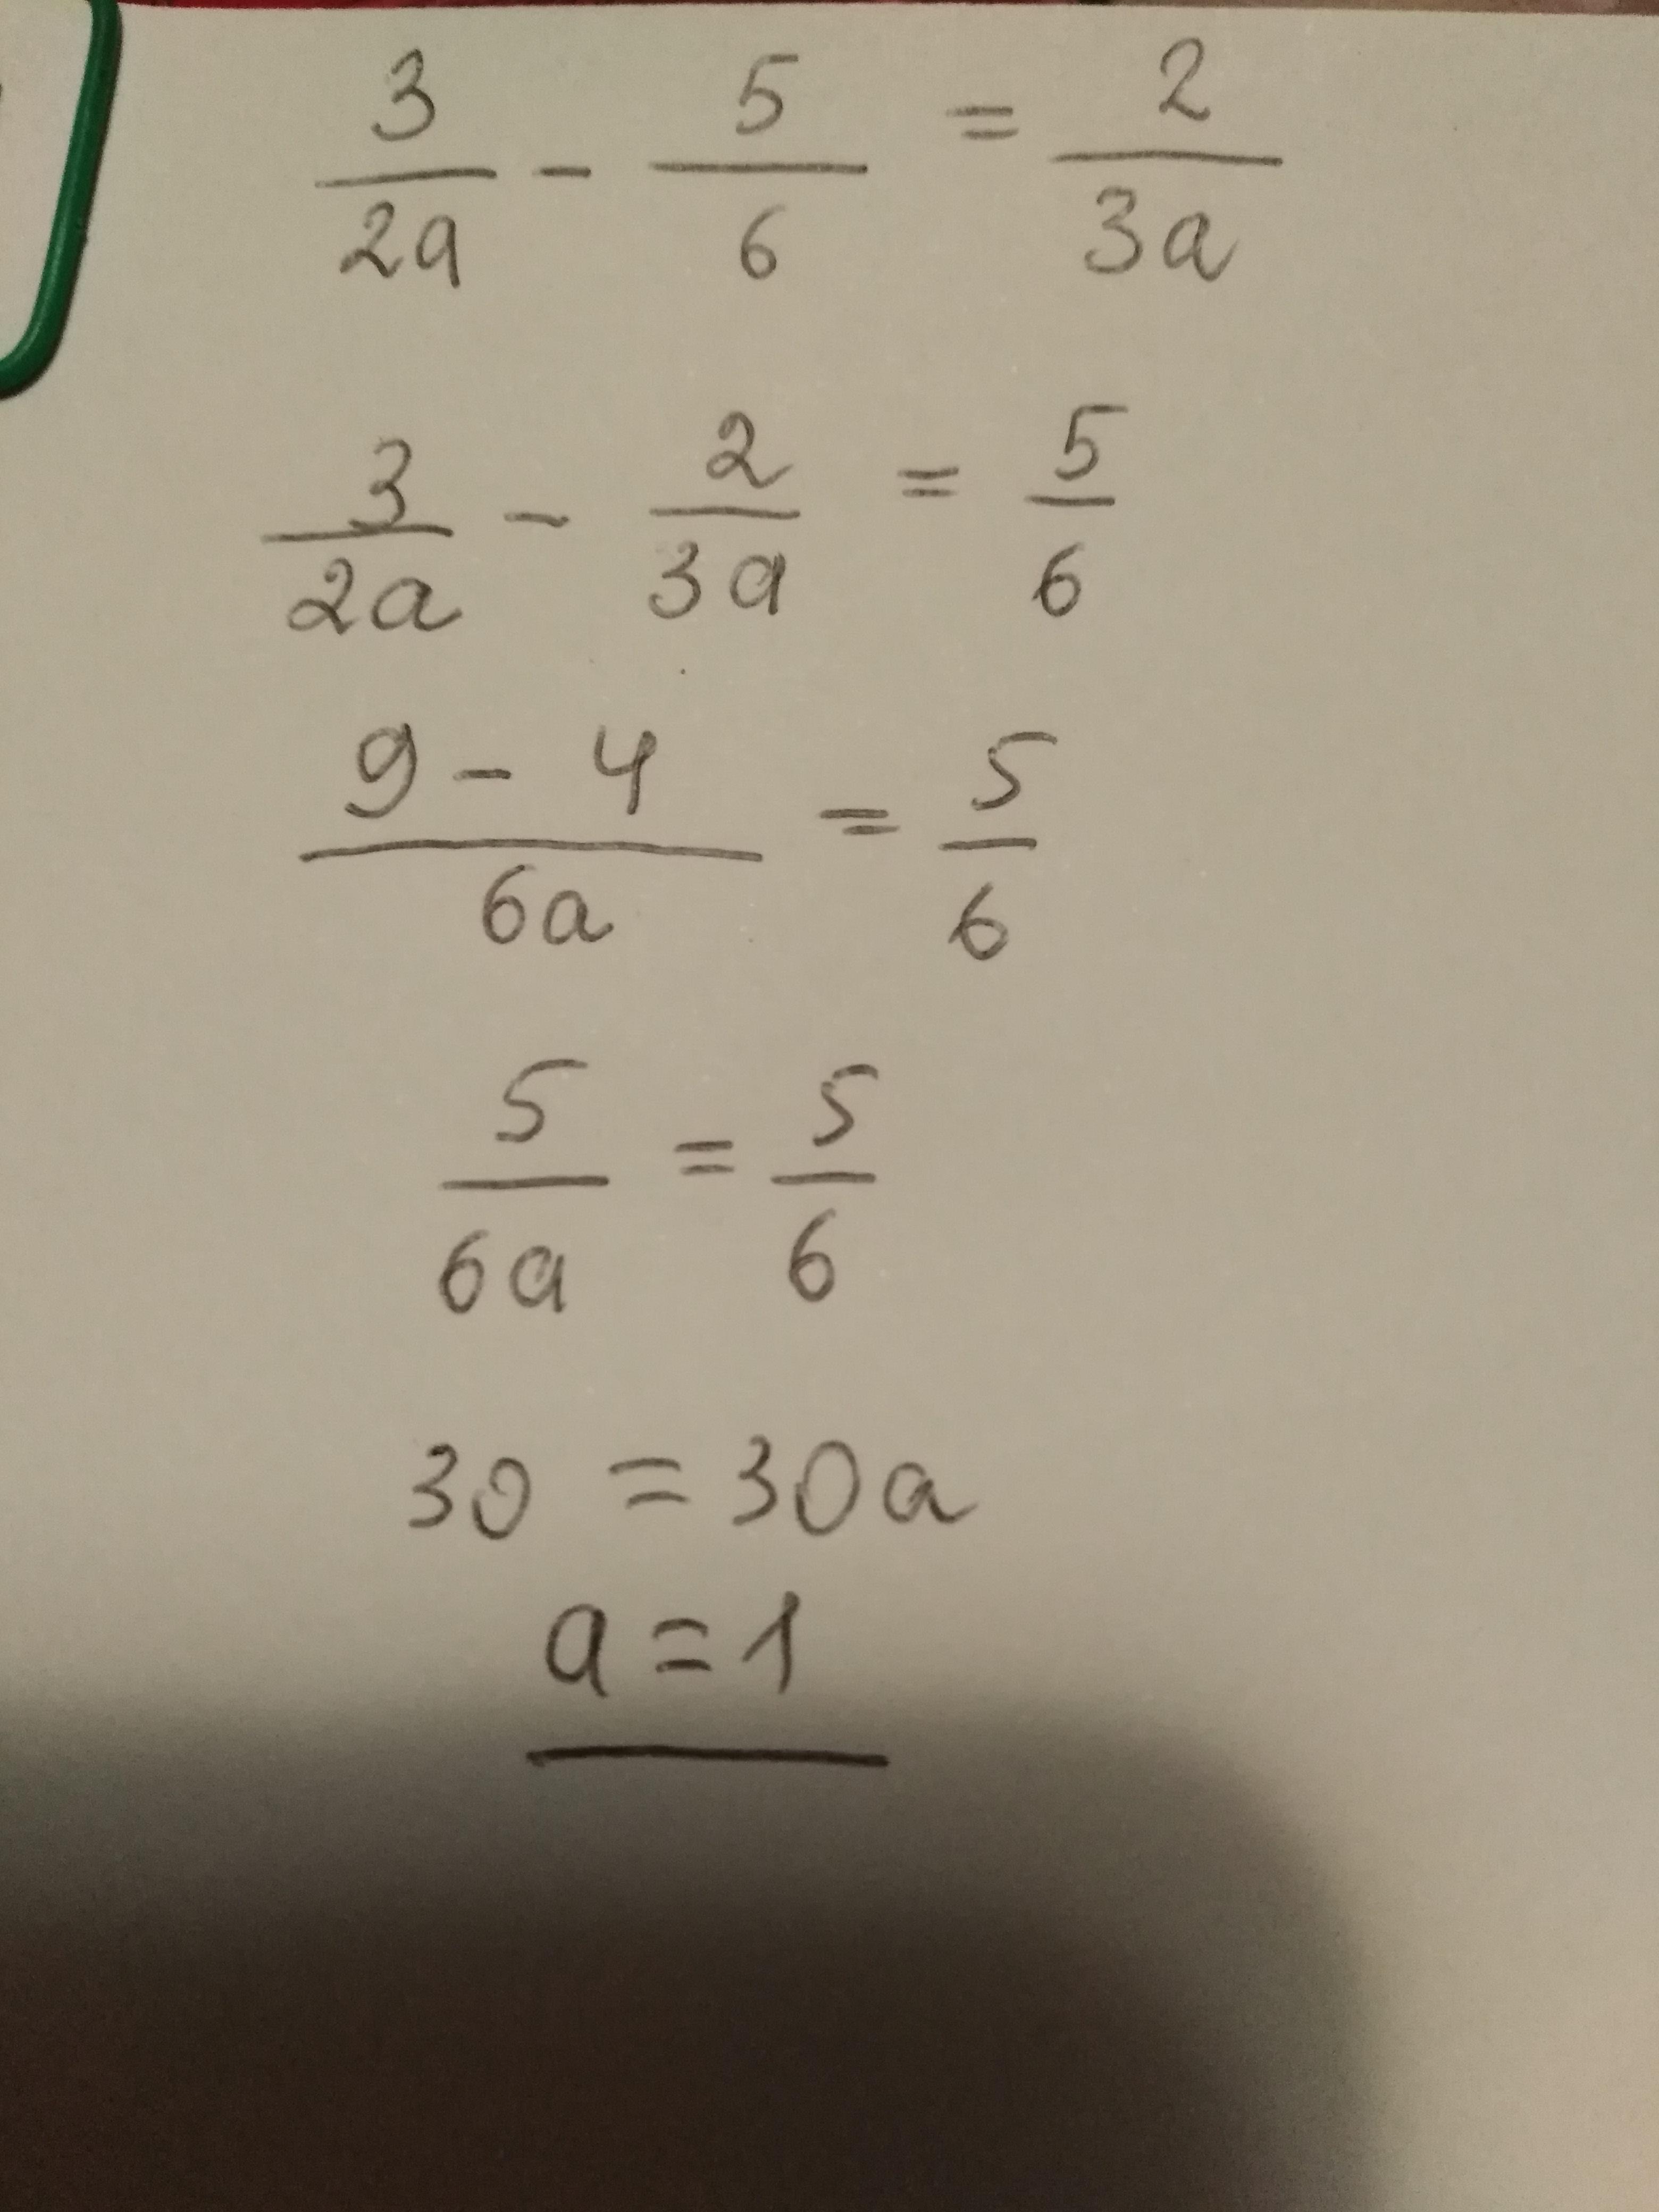 3/2a - 5/6 = 2/3a
3/2a - 2/3a = 5/6
9 - 4/6a = 5/6
5/6a = 5/6
30 = 30a
a = 1